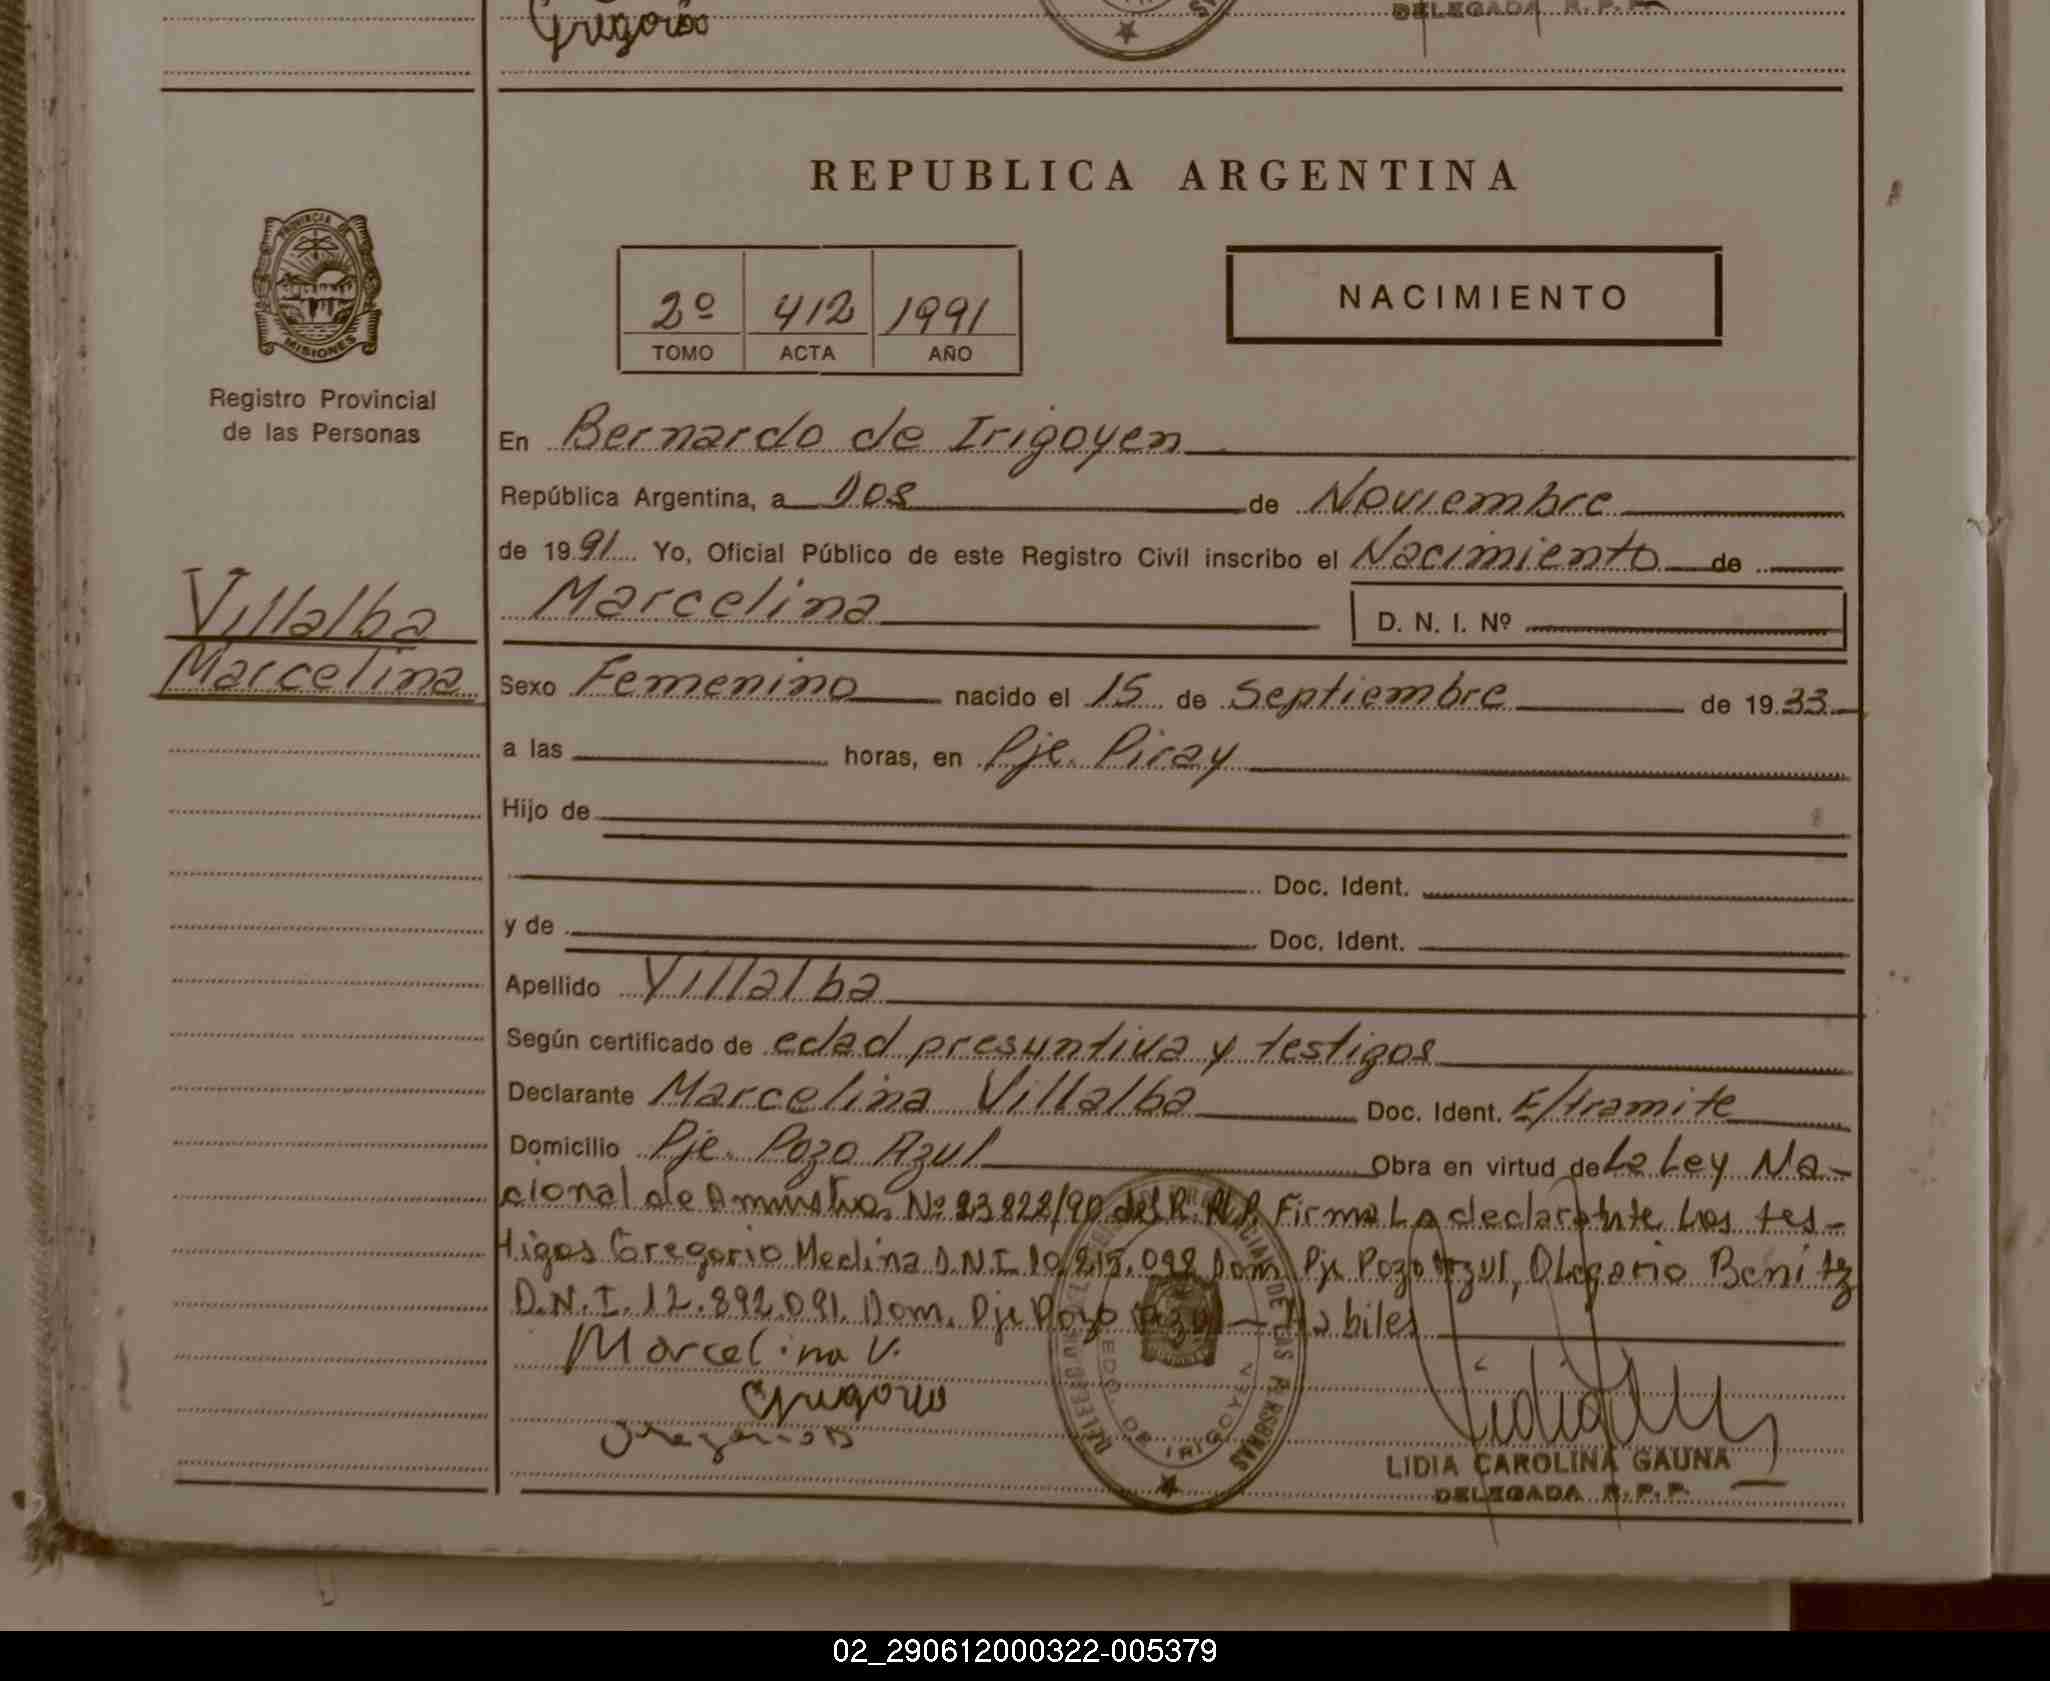 Gregorio
DELEGADA R. P. P.
REPUBLICA ARGENTINA
PROVINCIA DE
MISIONES
2º 412 1991
TOMO ACTA AÑO
NACIMIENTO
Registro Provincial
de las Personas
En Bernardo de Irigoyen
República Argentina, a Dos de Noviembre
de 1991 Yo, Oficial Público de este Registro Civil inscribo el Nacimiento de
Villalba
Marcelina
Marcelina D. N. I. Nº
Sexo Femenino nacido el 15 de Septiembre de 1933
a las horas, en Pje. Piray
Hijo de
Doc. Ident.
y de Doc. Ident.
Apellido Villalba
Según certificado de edad presuntiva y testigos
Declarante Marcelina Villalba Doc. Ident. E/tramite
Domicilio Pje. Pozo Azul Obra en virtud de La Ley Na-
cional de Amnistia Nº 23822/90 del R. P. P. Firma La declarante Los tes-
tigos Gregorio Medina D.N.I. 10.215.098 Dom. Pje Pozo Azul, Olegario Benitez
D.N.I. 12.892.091. Dom. Pje Pozo Azul — Habiles
Marcelina V.
Gregorio
LIDIA CAROLINA GAUNA
DELEGADA R. P. P.
DE IRIGOYEN
02_290612000322-005379